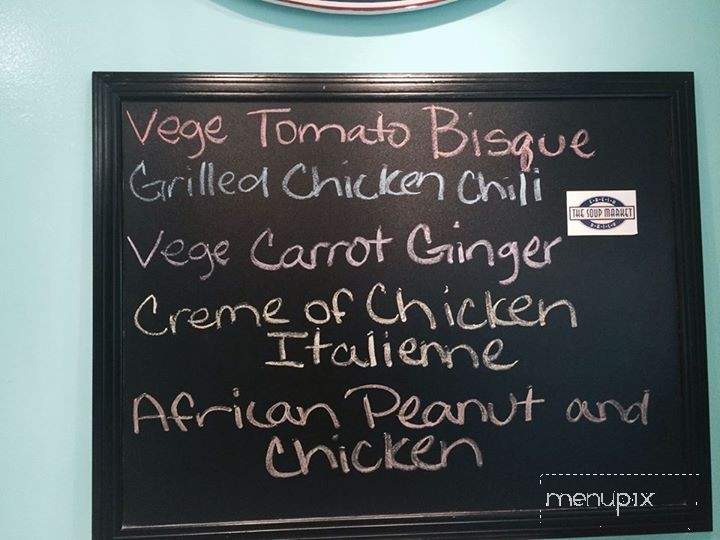 Vege Tomato Bisque
Grilled Chicken Chili
THE SOUP MARKET
Vege Carrot Ginger
Creme of Chicken
Italienne
African Peanut and
Chicken
menupix